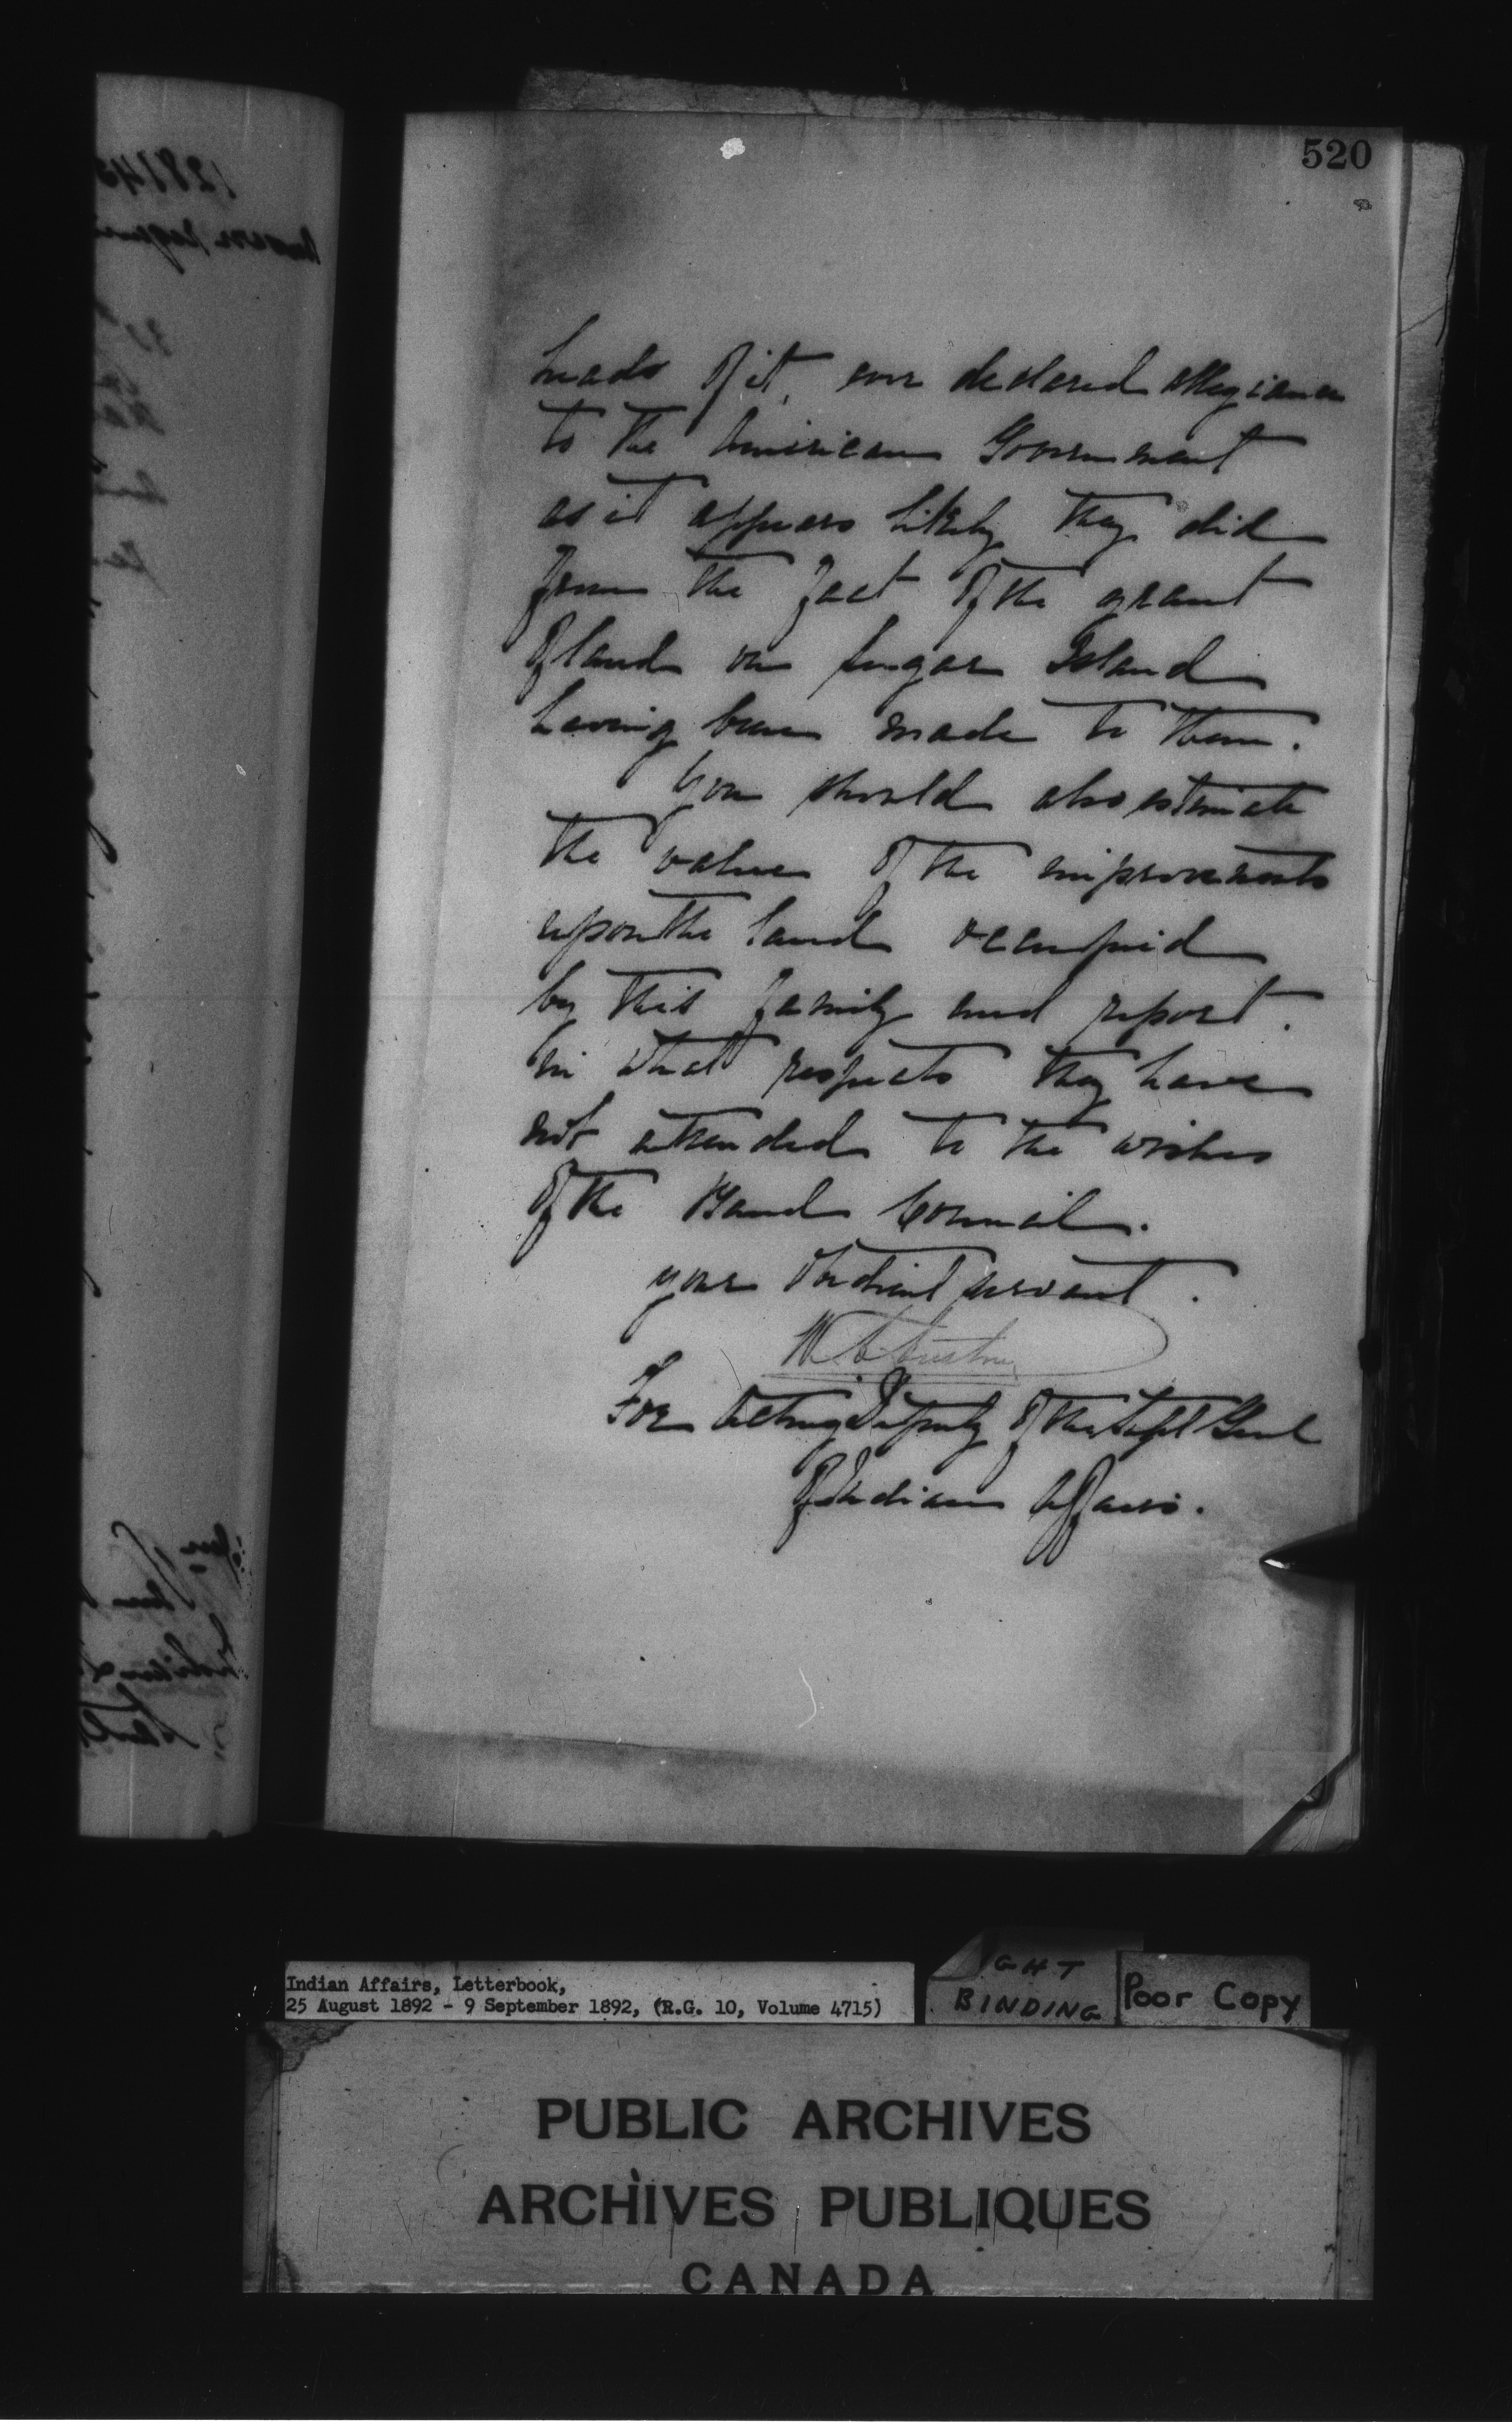 520
heads of it, ever declared allegiance
to the American Government
as it appears likely they did
from the fact of the grant
of land on Sugar Island
having been made to them.
You should also estimate
the value of the improvements
upon the land occupied
by this family and report.
in what respects they have
not attended to the wishes
of the Band Council.
your obedient servant.
For Acting Deputy of the Supt Genl
of Indian Affairs.
Indian Affairs, Letterbook,
25 August 1892 - 9 September 1892, (R.G. 10, Volume 4715)
GHT
BINDING
Poor Copy
PUBLIC ARCHIVES
ARCHIVES PUBLIQUES
CANADA